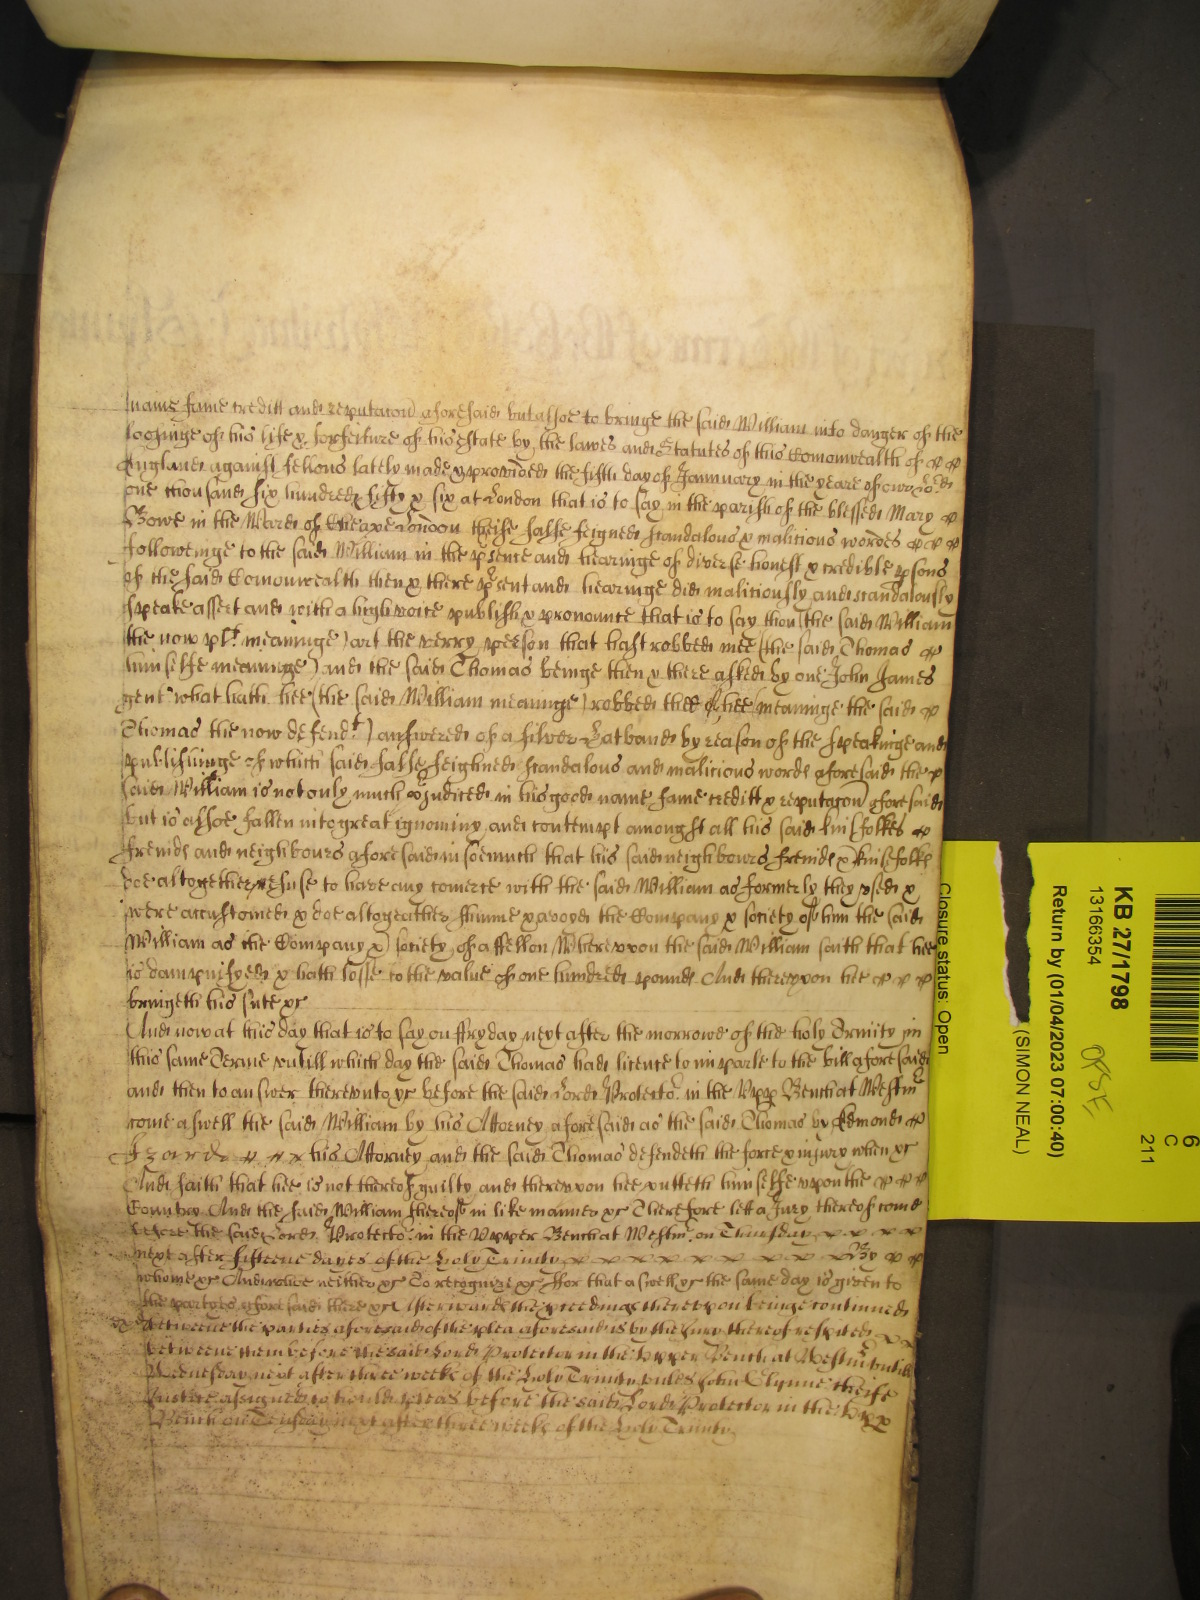 name fame creditt and reputacon aforesaid but alsoe to bringe the said William into danger of the
loosinge of his life & forfeiture of his estate by the lawes and Statutes of this Comonwealth of
England against fellons lately made & provided the fifth day of Jannuary in the yeare of our Lord
one thousand six hundred fifty & six at London that is to say in the parish of the blessed Mary
Bowe in the Ward of Cheape London theise false feigned scandalous & malicious wordes
followeinge to the said William in the psence and hearinge of diverse honest & credible psons
of the said Comonwealth then & there psent and hearinge did maliciously and scandalously
speake assert and with a high voice publish & pronounce that is to say thou (the said William
the now plt meaninge) art the verry person that hast robbed mee (the said Thomas
himselfe meaninge) and the said Thomas beinge then & there asked by one John James
gent what hath hee (the said William meaninge) robbed thee of thee (meaninge the said
Thomas the now defendt) answered of a silver hatband by reason of the speakinge and
publishinge of which said false feighned scandalous and malicious words aforesaid the
said William is not only much pjudiced in his good name fame creditt & reputacon aforesaid
but is alsoe fallen into great ignominy and contempt amongst all his said kinsfolkes
freinds and neighbours aforesaid in soemuch that his said neighbours freinds & kinsfolke
doe altogether refuse to have any comerce with the said William as formerly they used &
were accustomed & doe altogeather shunne & avoyd the Company & society of him the said
William as the Company & society of a ffellon Whereupon the said William saith that hee
is dampnifyed & hath losse to the value of one hundred pounds And thereupon hee
bringeth his sute &c
And now at this day that is to say on ffryday next after the morrowe of the holy Trinity in
this same Terme untill which day the said Thomas had licence to imparle to the bill aforesaid
and then to answer thereunto &c before the said Lord Protector in the Upp Bench at Westm
come aswell the said William by his Attorney aforesaid as the said Thomas by Edmond
his Attorney and the said Thomas defendeth the force & injury when &c
And saith that hee is not thereof guilty and thereupon hee putteth himselfe upon the
Country And the said William thereof in like manner &c Therefore lett a Jury thereof come
before the said Lord Protector in the Upper Bench at Westm on Thursday
next after fifteene dayes of the holy Trinity By
whome &c And whoe neither &c To recognize &c ffor that aswell &c the same day is given to
the partyes aforesaid there &c Afterwards the pceedings thereupon beinge continued
betweene the parties aforesaid of the plea aforesaid is by the Jury thereof respited
betweene them before the said Lord Protector in the Upper Bench at Westm untill
Wednesday next after three weeks of the holy Trinity unles John Glynne cheife
Justice assigned to hould pleas before the said Lord Protector in the Upp
Bench on Tuesday next after three weeks of the holy Trinity
Closure status: Open
(SIMON NEAL)
Return by (01/04/2023 07:00:40)
13166354
KB 27/1798
6
C
211